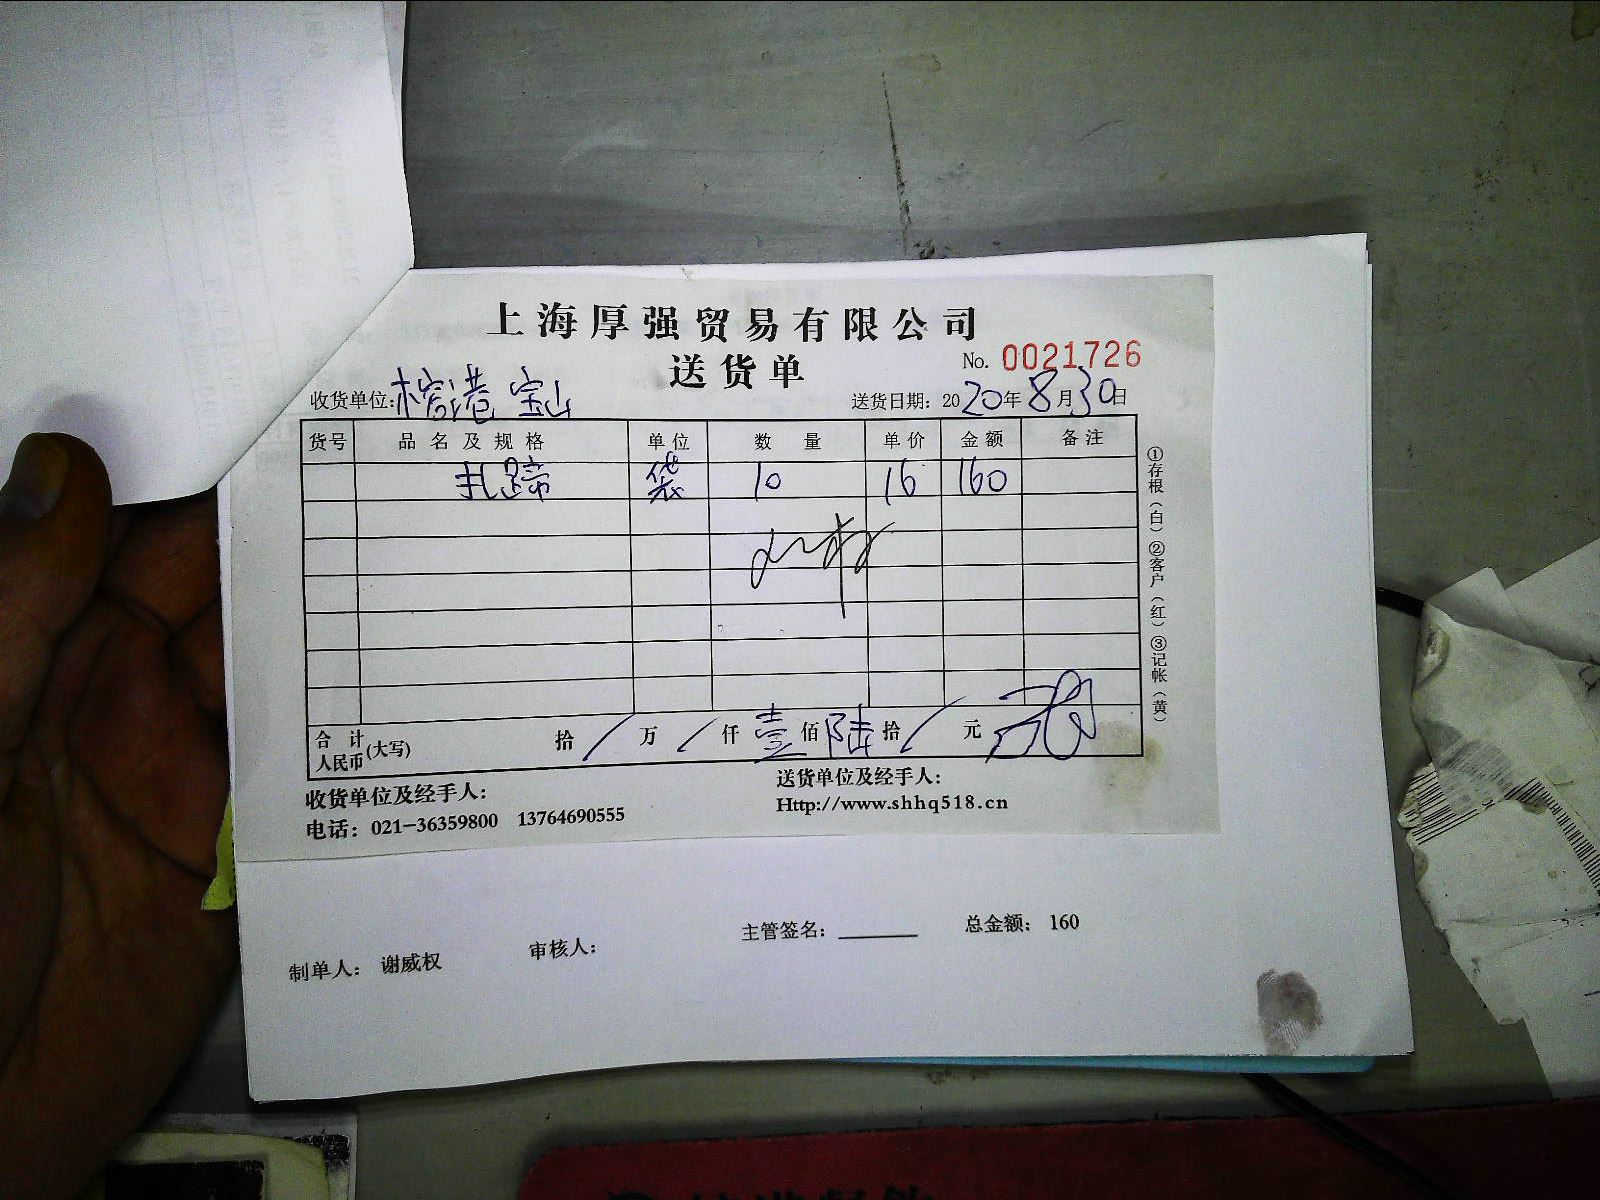 上海厚强贸易有限公司
送货单
No. 0021726
收货单位：榕港 宝山
送货日期：2020年8月30日
货号 品名及规格 单位 数量 单价 金额 备注
扎蹄 袋 10 16 160
合计人民币(大写) 拾/万/仟壹佰陆拾/元
①存根（白）②客户（红）③记帐（黄）
收货单位及经手人：
送货单位及经手人：
电话：021-36359800 13764690555
Http://www.shhq518.cn
制单人： 谢威权 审核人： 主管签名： 总金额： 160